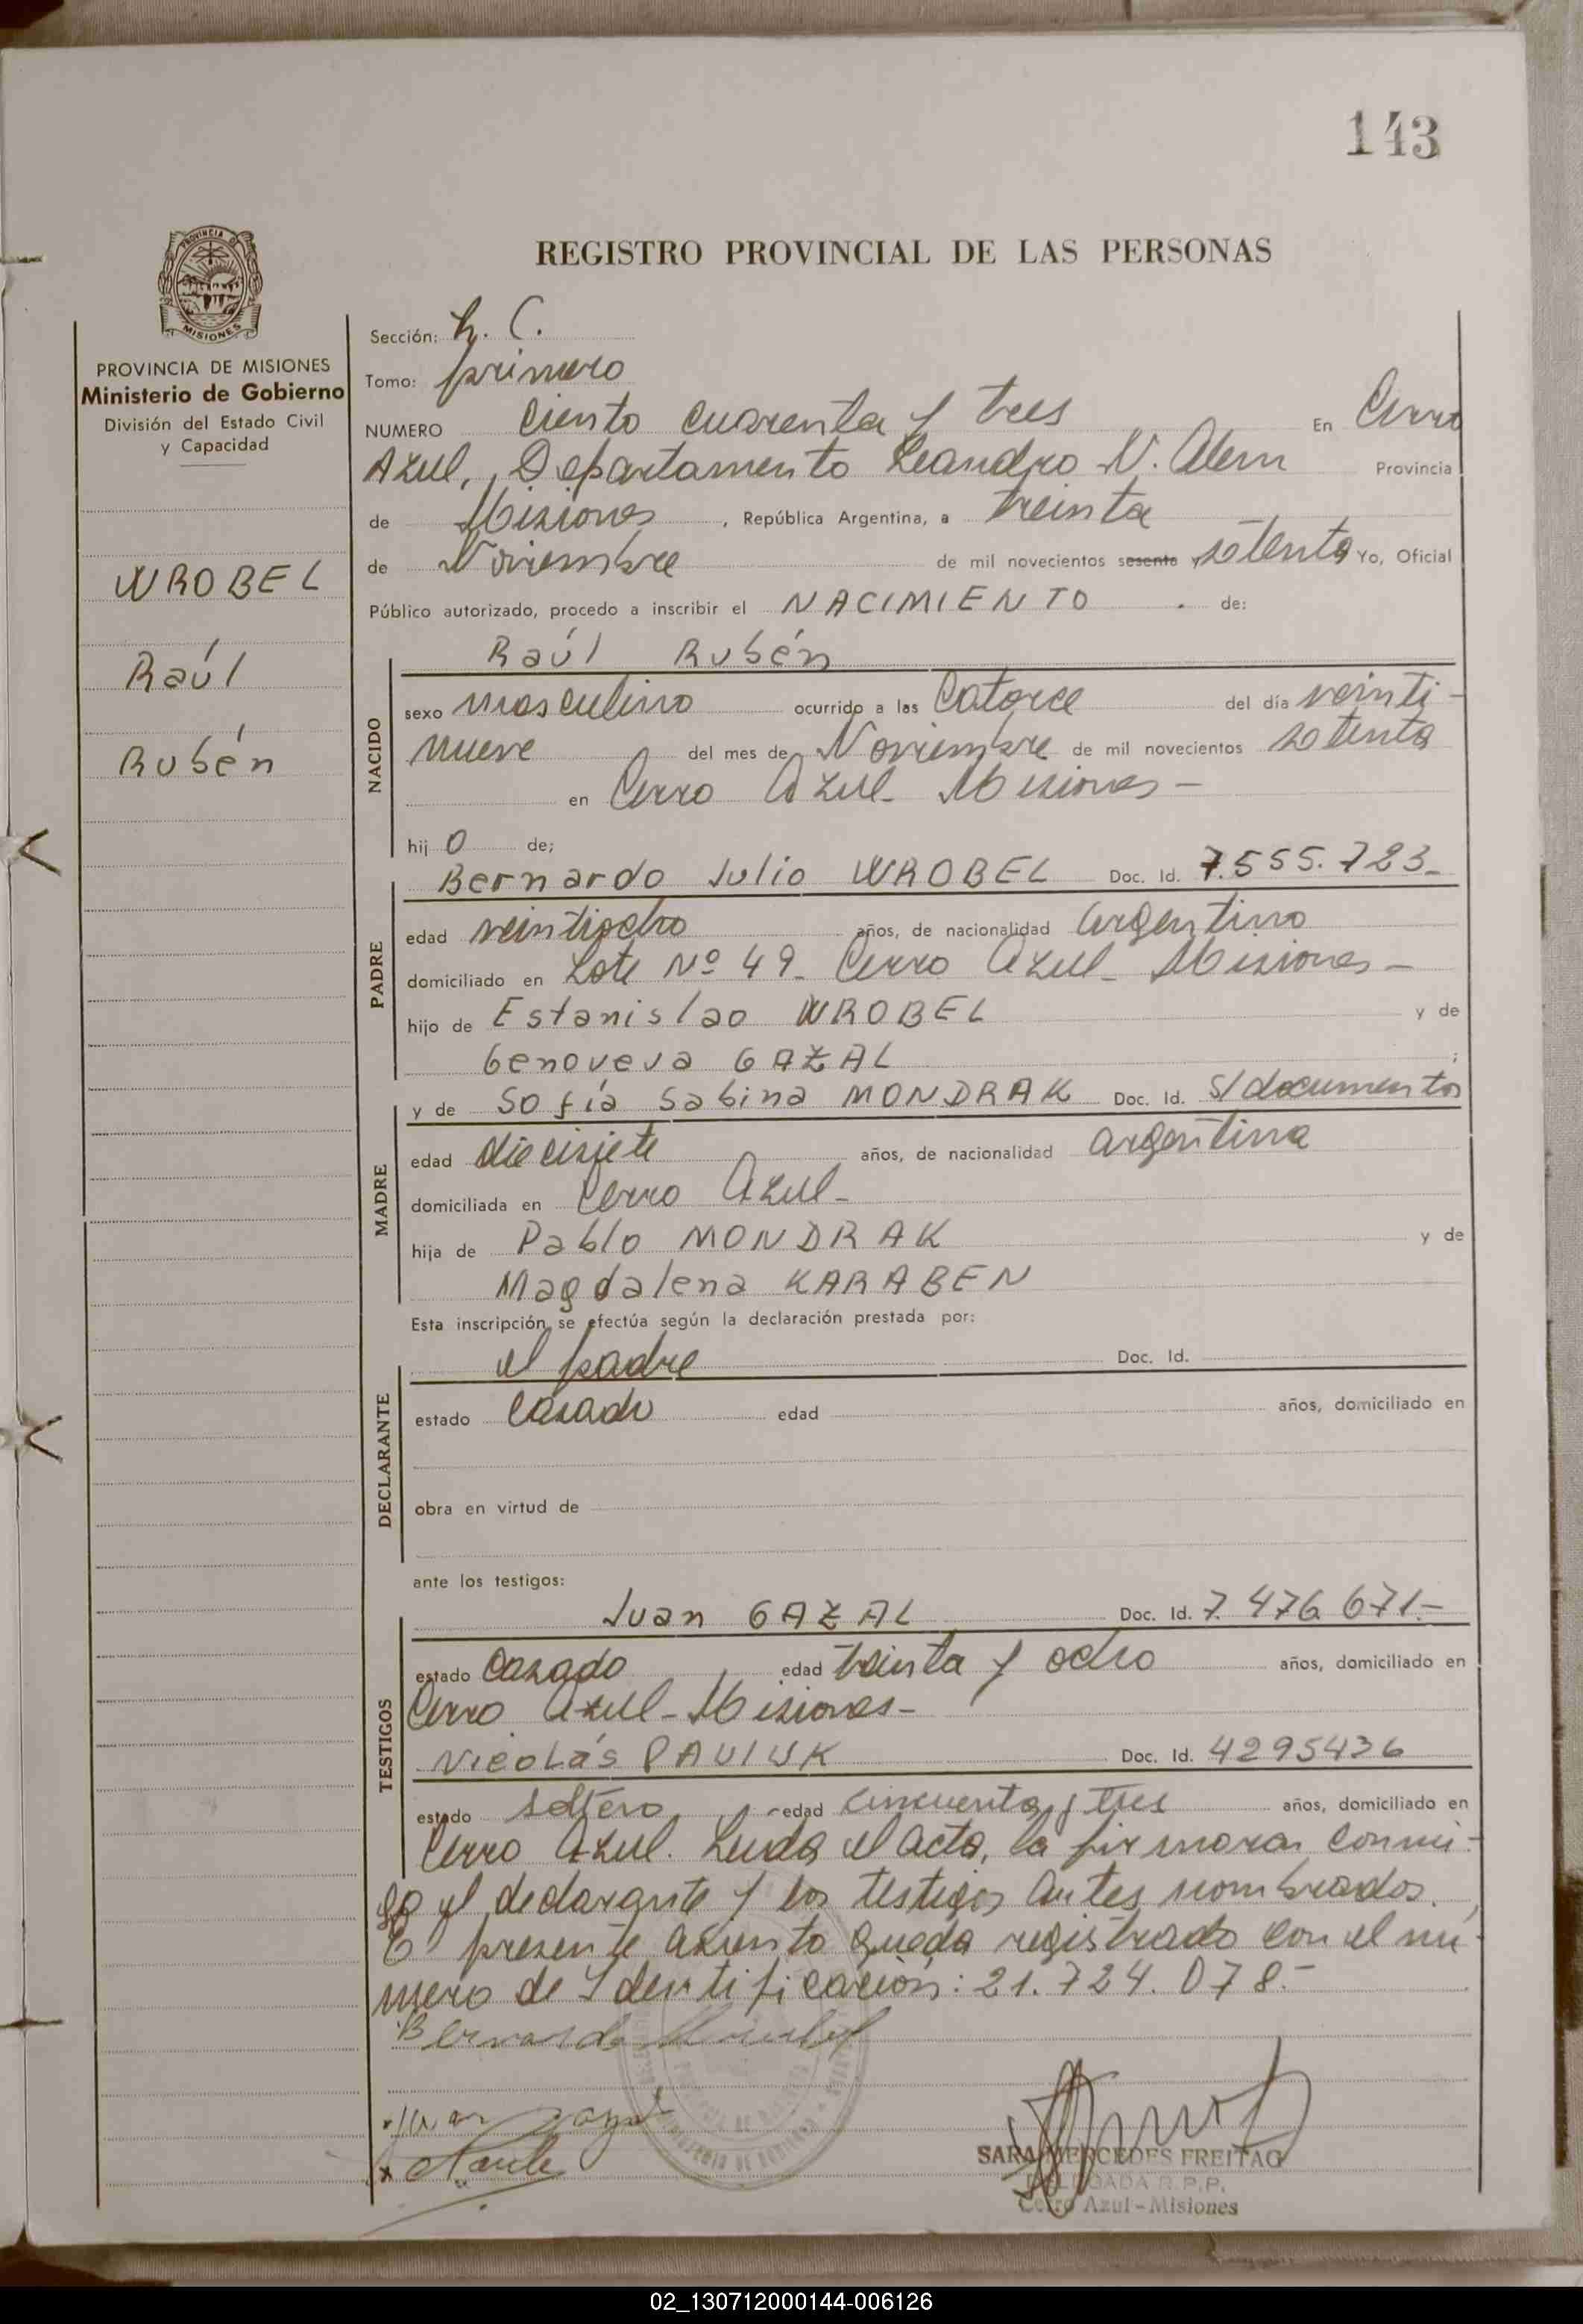 143
REGISTRO PROVINCIAL DE LAS PERSONAS
PROVINCIA DE
MISIONES
PROVINCIA DE MISIONES
Ministerio de Gobierno
División del Estado Civil
y Capacidad
WROBEL
Raúl
Rubén
Sección: h. C.
Tomo: primero
NUMERO Ciento cuarenta y tres En Cerro
Azul, Departamento Leandro N. Alem Provincia
de Misiones, República Argentina, a treinta
de Noviembre de mil novecientos sesenta y setenta Yo, Oficial
Público autorizado, procedo a inscribir el NACIMIENTO . de:
Raúl Rubén
NACIDO
sexo masculino ocurrido a las Catorce del día veinti-
nueve del mes de Noviembre de mil novecientos setenta
en Cerro Azul - Misiones -
hijo de;
Bernardo Julio WROBEL Doc. Id. 7.555.723-
PADRE
edad veintiocho años, de nacionalidad argentino
domiciliado en Lote Nº 49- Cerro Azul - Misiones -
hijo de Estanislao WROBEL y de
Genoveva GAZAL ;
y de Sofía Sabina MONDRAK Doc. Id. S/documentos
MADRE
edad diecisiete años, de nacionalidad argentina
domiciliada en Cerro Azul -
hija de Pablo MONDRAK y de
Magdalena KARABEN
Esta inscripción se efectúa según la declaración prestada por:
el padre Doc. Id.
DECLARANTE
estado Casado edad años, domiciliado en
obra en virtud de
ante los testigos:
Juan GAZAL Doc. Id. 7.476.671.-
TESTIGOS
estado Casado edad treinta y ocho años, domiciliado en
Cerro Azul - Misiones -
Nicolás PAULUK Doc. Id. 4295436
estado soltero, edad cincuenta y tres años, domiciliado en
Cerro Azul. Leida el acta, la firmaran conmi-
go el declarante y los testigos antes nombrados.
El presente asiento queda registrado con el nú-
mero de Identificación: 21.724.078.-
Bernardo Wrobel
Juan
SARA MERCEDES FREITAG
DELEGADA R.P.P.
Cerro Azul - Misiones
02_130712000144-006126